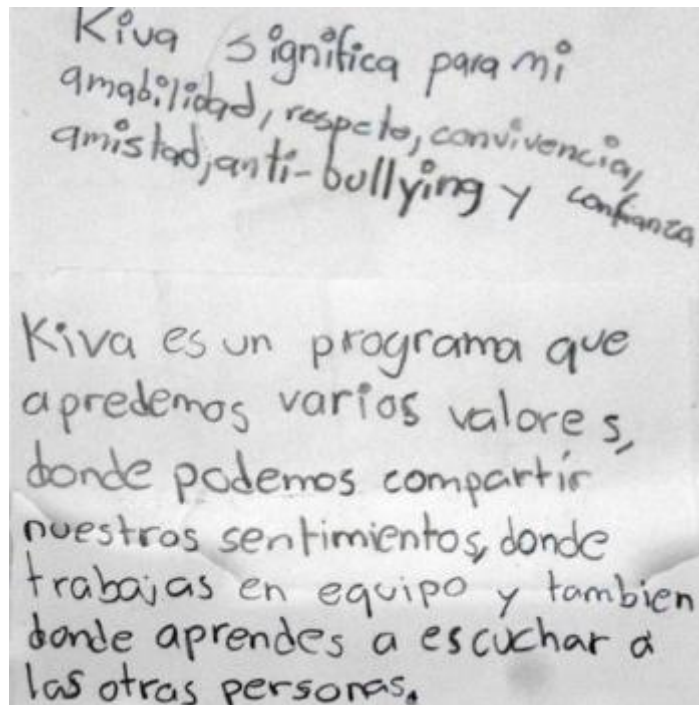 Kiva significa para mi
amabilidad, respeto, convivencia,
amistad, anti-bullying y confianza
Kiva es un programa que
apredemos varios valores,
donde podemos compartir
nuestros sentimientos, donde
trabajas en equipo y tambien
donde aprendes a escuchar a
las otras personas.